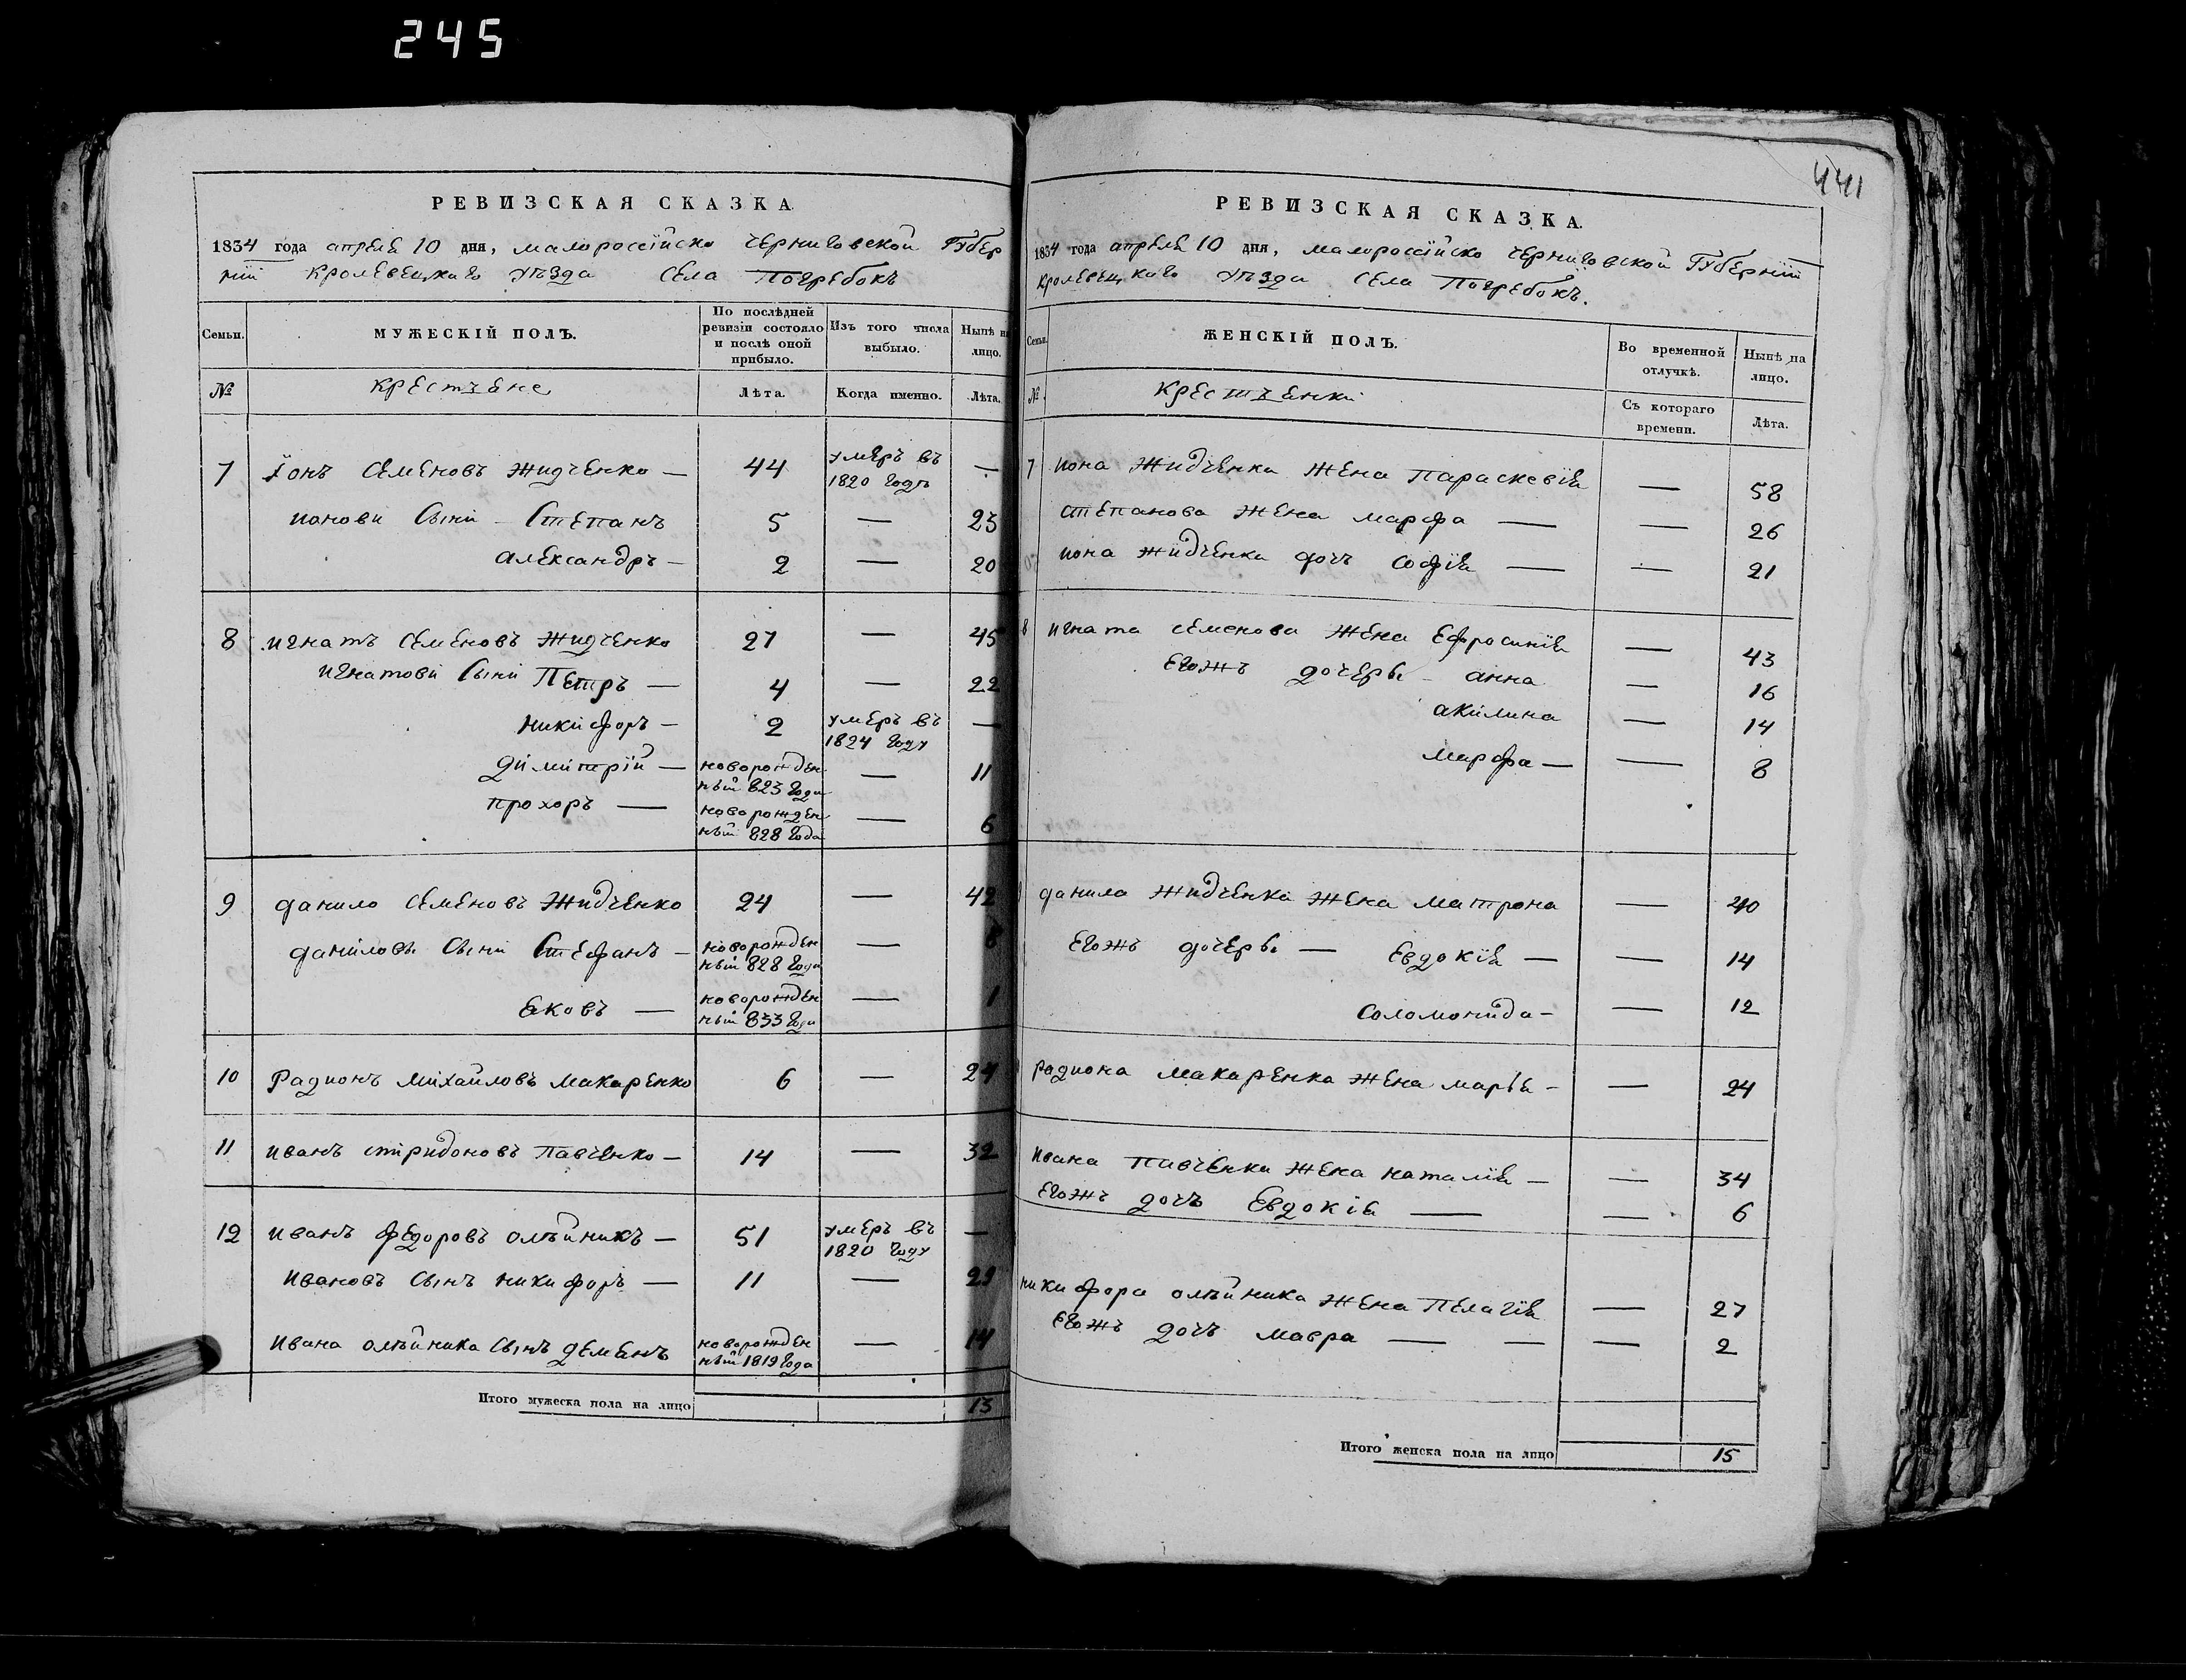 245
441
РЕВИЗСКАЯ СКАЗКА.
1834 года апрѣля 10 дня, малоросcійско черниговской Губер
нiи кролевецкаго уѣзда села Погребокъ
Семьи. МУЖЕСКІЙ ПОЛЪ. По послѣдней ревизіи состояло и послѣ оной прибыло. Изъ того числа выбыло. Нынѣ на лицо.
№ крестьяне Лѣта. Когда именно. Лѣта.
7 Іонъ Семеновъ Жидченко — 44 умеръ въ 1820 годѣ —
ионови Сыни - Степанъ 5 — 23
александръ — 2 — 20
8 игнатъ Семеновъ Жидченко 27 — 45
игнатови Сыни Петръ — 4 — 22
никифоръ — 2 умеръ въ 1824 году —
димитрій — новорожденный 823 года — 11
прохоръ — новорожденный 828 года — 6
9 данило Семеновъ Жидченко 24 — 42
даниловы Сыни Стефанъ — новорожденный 828 года — 6
яковъ — новорожденный 833 года — 1
10 Радионъ Михайловъ Макаренко 6 — 24
11 иванъ спиридоновъ Павченко — 14 — 32
12 иванъ федоровъ олѣйникъ — 51 умеръ въ 1820 году —
ивановъ Сынъ никифоръ — 11 — 29
ивана олѣйника Сынъ демянъ новорожденный 1819 года — 14
Итого мужеска пола на лицо 13
РЕВИЗСКАЯ СКАЗКА.
1834 года апрѣля 10 дня, малоросcійско черниговской Губернiи
кролевецкаго уѣзда села Погребокъ.
Семьи. ЖЕНСКІЙ ПОЛЪ. Во временной отлучкѣ. Нынѣ на лицо.
№ крестьянки Съ котораго времени. Лѣта.
7 иона Жидченка жена Параскевія — 58
степанова жена марфа — — 26
иона жидченка дочъ софія — — 21
8 игната семенова жена Ефросинія — 43
егожъ дочеры - анна — 16
акилина — 14
марфа — — 8
данила Жидченка жена матрона — 40
егожъ дочеры — Евдокія — — 14
Соломонида — — 12
радиона макаренка жена марья — — 24
ивана Павченка жена наталія — — 34
егожъ дочъ Евдокія — — 6
никифора олѣйника жена Пелагія — 27
егожъ дочъ мавра — — — 2
Итого женска пола на лицо 15